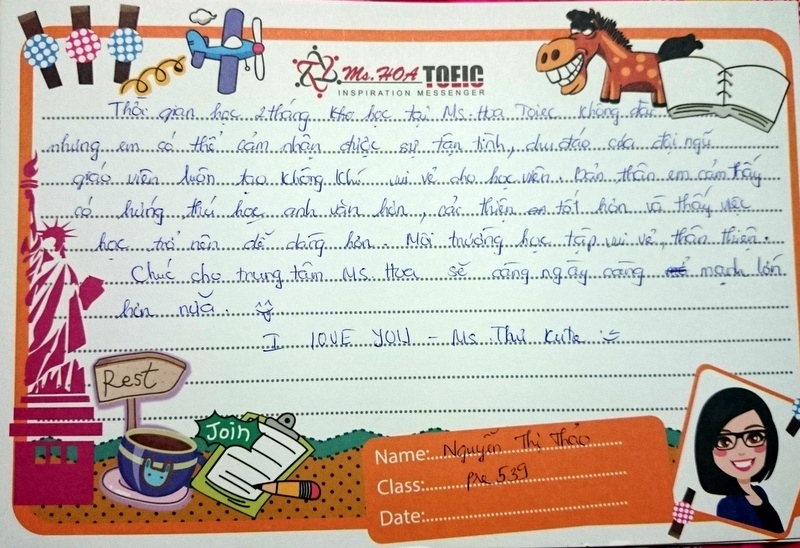 Ms.HOA TOEIC
INSPIRATION MESSENGER
Thời gian học 2 tháng khoá học tại Ms. Hoa Toiec không dài
nhưng em có thể cảm nhận được sự tận tình, chu đáo của đội ngũ
giáo viên luôn tạo không khí vui vẻ cho học viên. Bản thân em cảm thấy
có hứng thú học anh văn hơn, cải thiện tốt hơn và thấy việc
học trở nên dễ dàng hơn. Môi trường học tập vui vẻ, thân thiện.
Chúc cho trung tâm Ms. Hoa sẽ càng ngày càng mạnh lớn
hơn nữa.
I LOVE YOU - Ms Thư Kute
Rest
Join
Name: Nguyễn Thị Thảo
Class: Pre 539
Date: